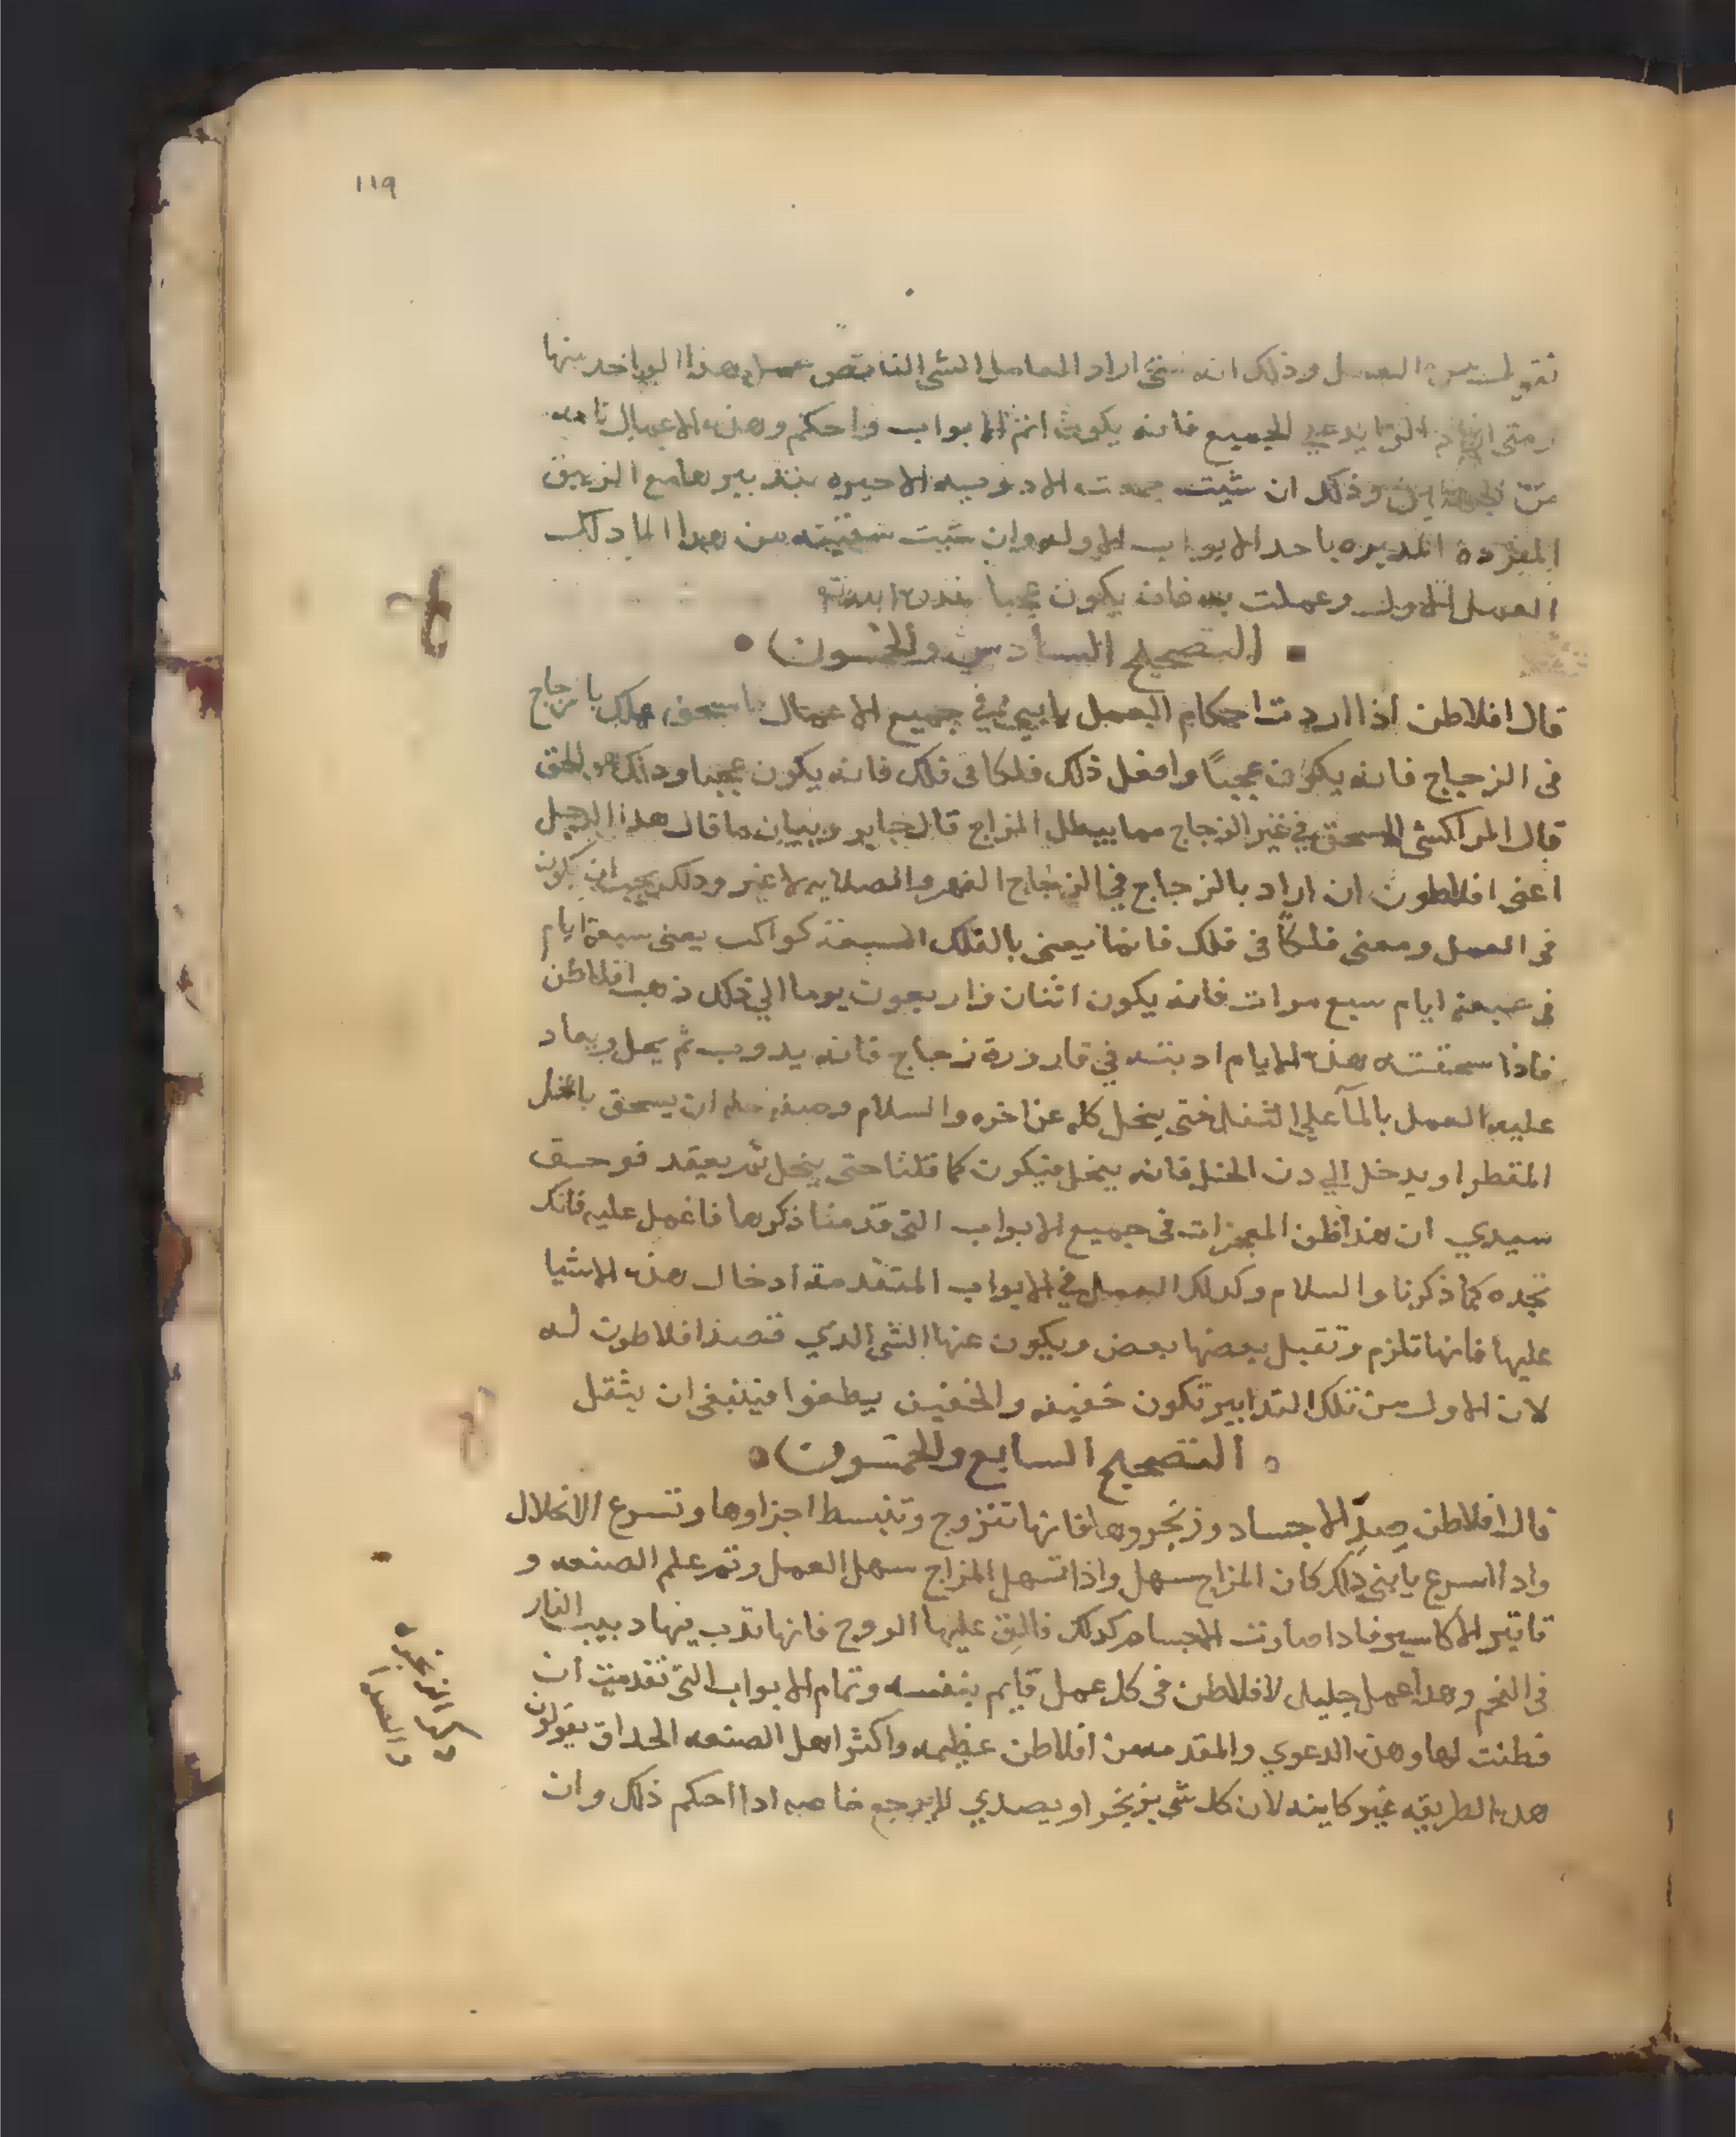 119
وذلك انه متى اراد العامل الشي الناقص عمل هذا الواحد منها
الجميع فانه يكون اتم الابواب واحكم وهذه الاعمال تامه
وذلك ان شيت الاخيره بتدبيرها مع الزيبق
المفرده المدبره باحد الابواب الاوله وان شيت سقيته من هدا الما دلك
العمل الاول وعملت به فانه يكون عجبا
التصحيح السادس والخمسون
قال افلاطن اذا اردت احكام العمل يابني في جميع الاعمال فاسحق عملك بالزجاج
في الزجاج فانه يكون عجيبًا وافعل ذلك فلكا في فلك فانه يكون عجبا ودلك هو الحق
قال المراكشي السحق في غير الزجاج مما يبطل المزاج قال جابر وبيان ما قال هدا الرجل
اعني افلاطون ان اراد بالزجاج في الزجاج الفهر والصلايه لا غير ودلك يجب ان يكون
في العمل ومعنى فلكاً في فلك فانما يعني بالفلك السبعة كواكب يعني سبعة ايام
في سبعة ايام سبع مرات فانه يكون اثنان واربعون يوما الي ذلك ذهب افلاطن
فاذا سحقته هذه الايام ادبته في قارورة زجاج فانه يدوب ثم يحل ويعاد
عليه العمل بالمآ علي الثفل حتى ينحل كله عن اخره والسلام وصفة حله ان يسحق بالخل
المقطر او يدخل الي دن الخل فانه ينحل فيكون كما قلنا حتى ينحل ثم يعقد فوحق
سيدي ان هذا لمن المعجزات في جميع الابواب التي قدمنا ذكرها فاعمل عليه فانك
تجده كما ذكرنا والسلام وكدلك العمل في الابواب المتقدمة ادخال هذه الاشيا
عليها فانها تلزم وتقبل بعضها بعض ويكون عنها الشي الدي قصد افلاطون له
لان الاول من تلك التدابير تكون خفيفه والخفيف يطفوا فينبغي ان يثقل
التصحيح السابع والخمسون
قال افلاطن صدِّ الاجساد وزنجروها فانها تتزوج وتنبسط اجزاوها وتسرع الانحلال
وادا اسرع يابني ذلك كان المزاج سهل واذا تسهل المزاج سهل العمل وتم علم الصنعه و
تاتير الاكاسير فادا صارت الاجسام كدلك فالق عليها الروح فانها تدب فيها دبيب النار
في الفحم وهدا عمل جليل لافلاطن في كل عمل قايم بنفسه وتمام الابواب التي تقدمت ان
فطنت لها وهذه الدعوي والمقدمه من افلاطن عظيمه واكثر اهل الصنعه الحداق يقولون
هده الطريقه غير كاينه لان كل شي يزنجر او يصدي لا يرجع خاصه ادا احكم ذلك وان